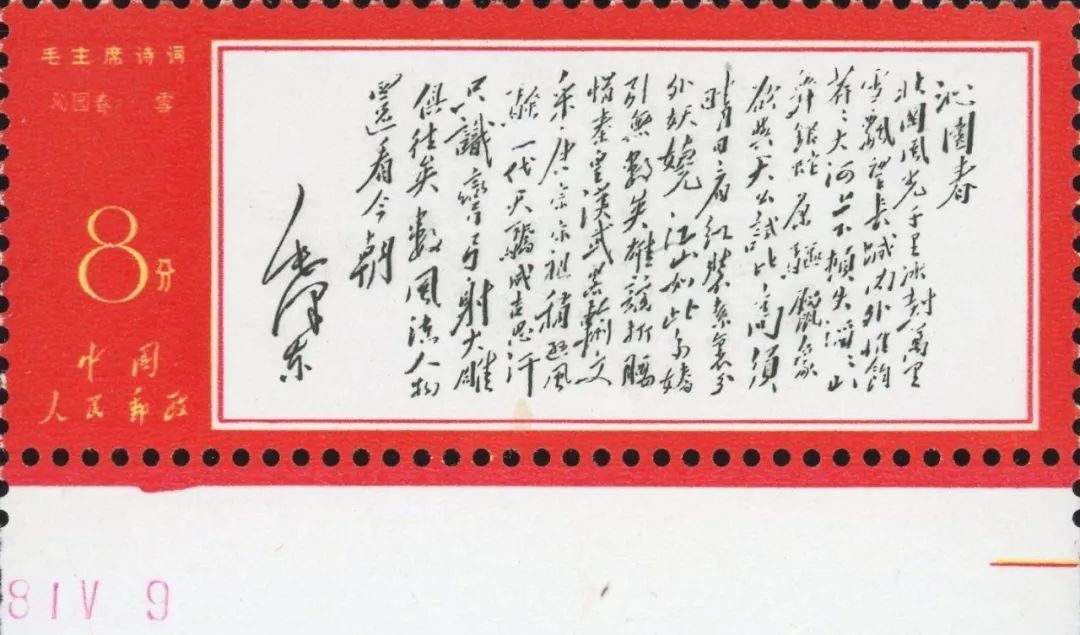 毛主席诗词
沁园春 雪
8分
中国
人民邮政
沁園春
北國風光千里冰封萬里
雪飄望長城内外惟餘
莽〻大河上下頓失滔〻山
舞銀蛇原驅臘象
欲與天公試比高須
晴日看紅裝素裹分
外妖嬈江山如此多嬌
引無數英雄競折腰
惜秦皇漢武略輸文
采唐宗宋祖稍遜風
騷一代天驕成吉思汗
只識彎弓射大雕
俱往矣數風流人物
還看今朝
毛澤东
81V 9